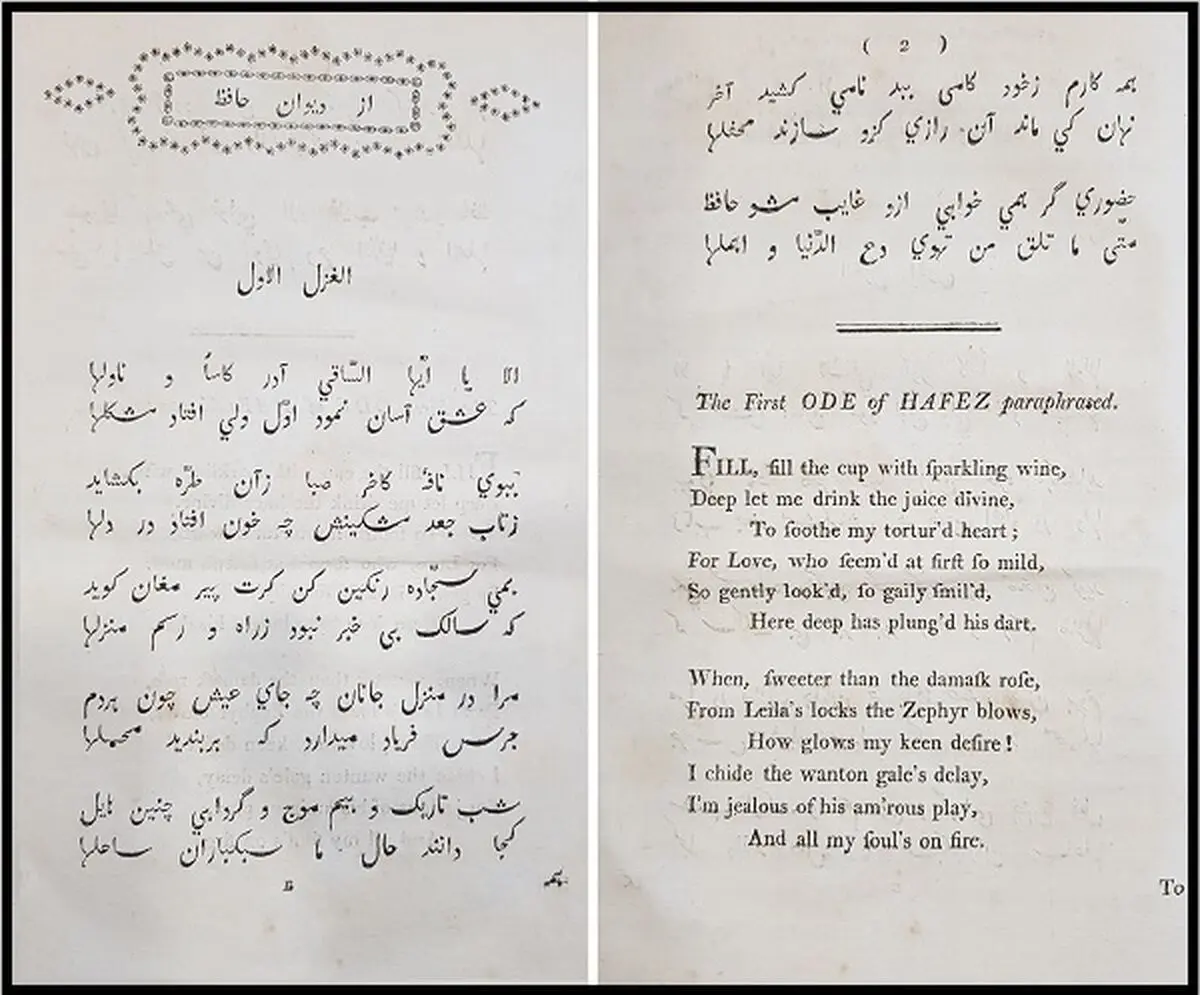 از ديوان حافظ
الغزل الاول
الا يا ايّها السّاقي آدر كاساً و ناولها
كه عشق آسان نمود اوّل ولي افتاد مشكلها
ببوي نافۀ كاخر صبا زآن طرّه بكشايد
زتاب جعد مشكينش چه خون افتاد در دلها
بمي سجّاده رنكين كن كرت پير مغان كويد
كه سالك بي خبر نبود زراه و رسم منزلها
مرا در منزل جانان چه جاي عيش چون هردم
جرس فرياد ميدارد كه بربنديد محملها
شب تاريك و بيم موج و گردابي چنين هايل
كجا دانند حال ما سبكباران ساحلها
B
همه
( 2 )
همه كارم زخود كامي ببد نامي كشيد آخر
نهان كي ماند آن رازي كزو سازند محفلها
حضوري گر همي خواهي ازو غايب مشو حافظ
متّي ما تلق من تهوي دع الدّنيا و اهملها
The First ODE of HAFEZ paraphrased.
FILL, fill the cup with ſparkling wine,
Deep let me drink the juice divine,
To ſoothe my tortur'd heart;
For Love, who ſeem'd at firſt ſo mild,
So gently look'd, ſo gaily ſmil'd,
Here deep has plung'd his dart.
When, ſweeter than the damaſk roſe,
From Leila's locks the Zephyr blows,
How glows my keen deſire!
I chide the wanton gale's delay,
I'm jealous of his am'rous play,
And all my ſoul's on fire.
To